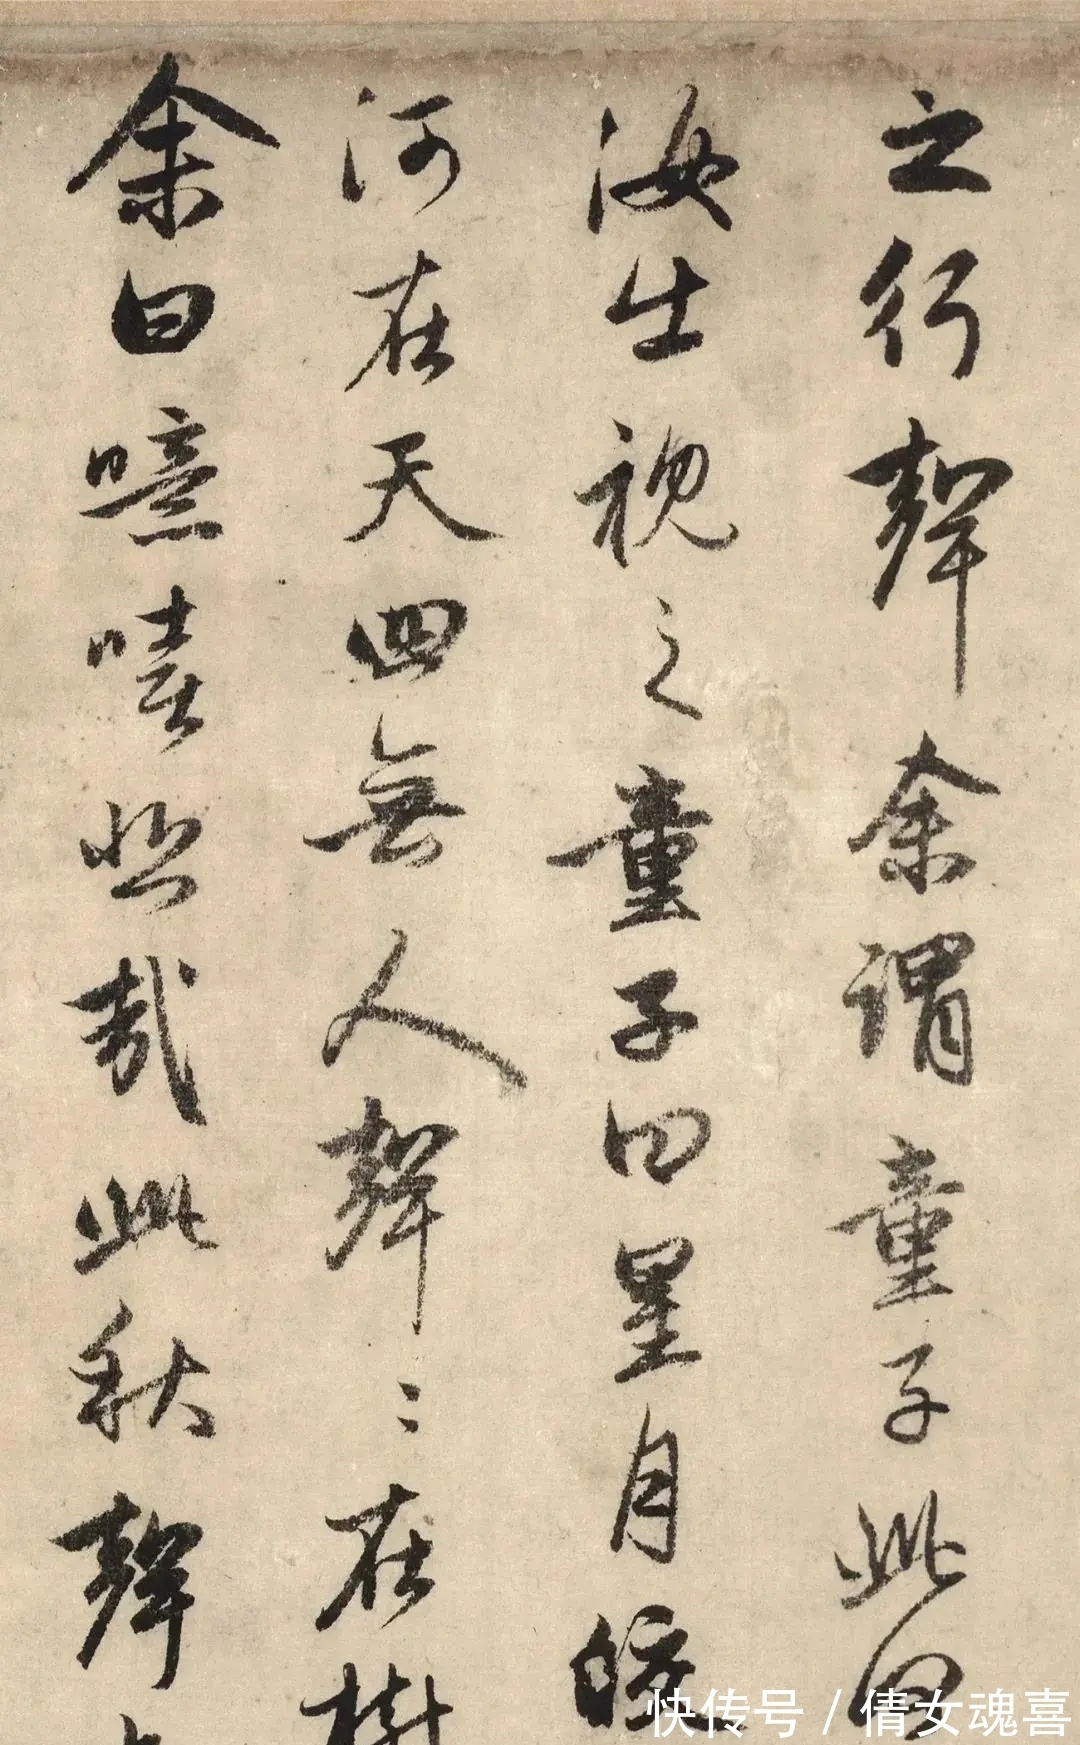 之行聲余謂童子此何
汝出視之童子曰星月皎
河在天四無人聲〻在樹
余曰噫嘻悲哉此秋聲
快传号 / 倩女魂喜